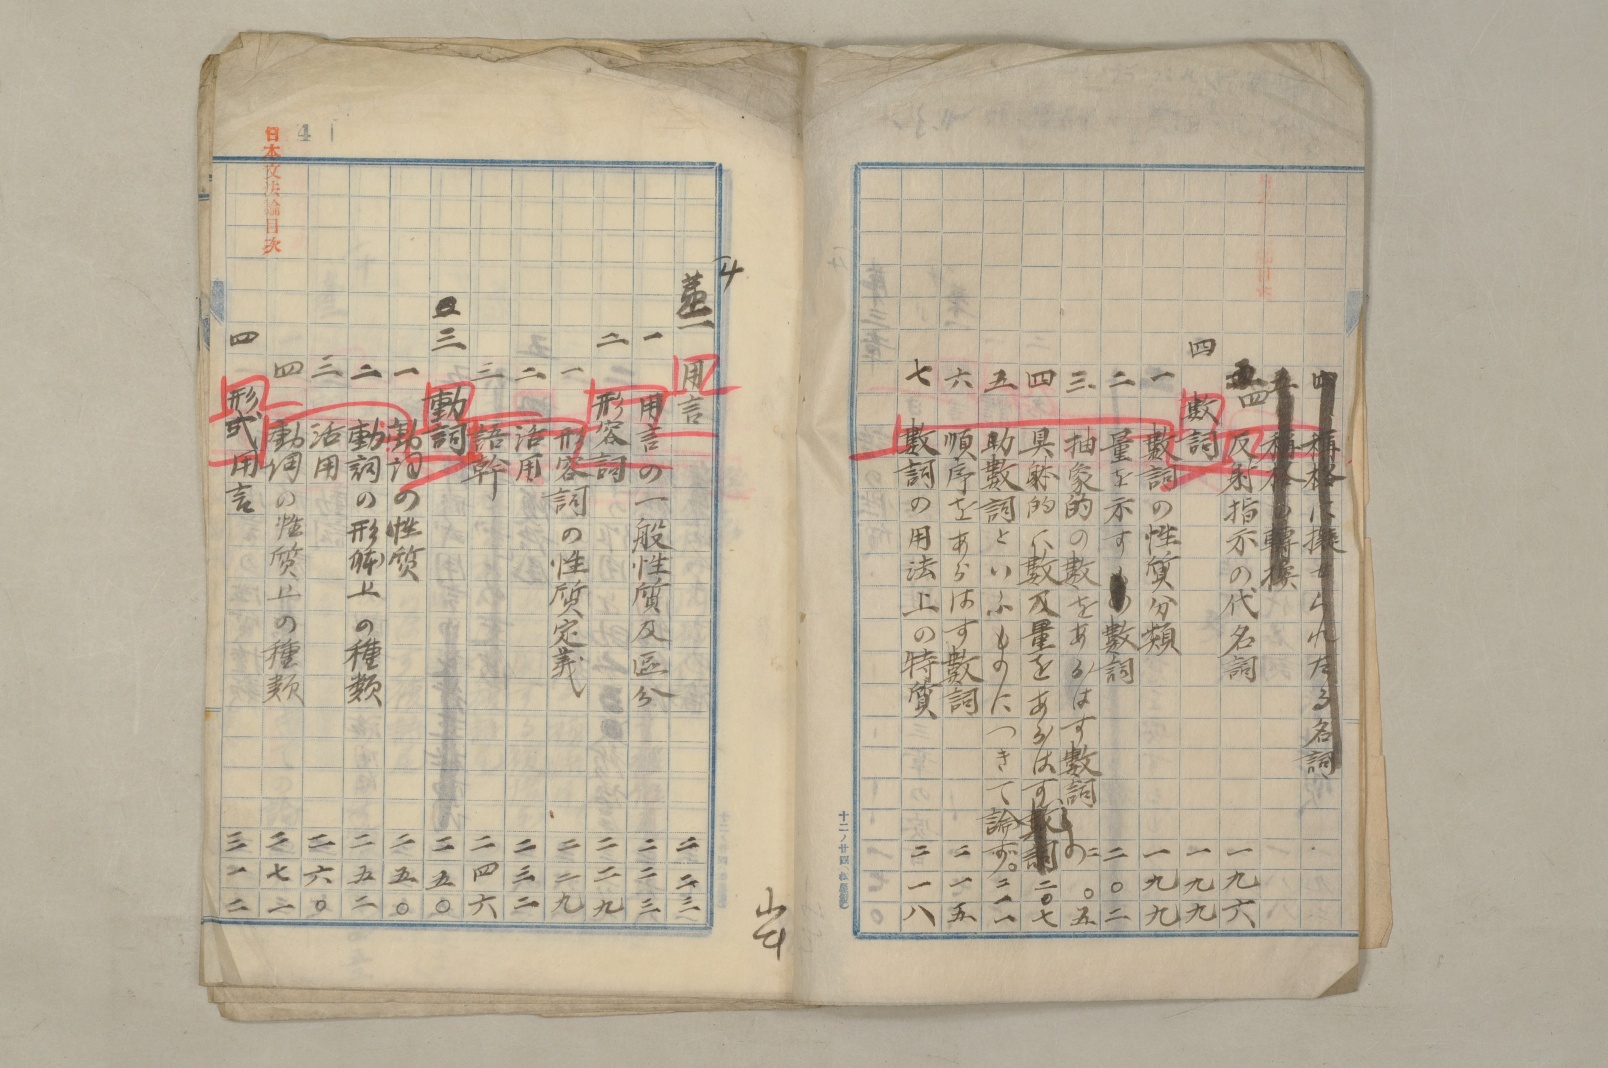 四 稱格に擬せられたる名詞
五 稱格の轉換
四 反射指示の代名詞 一九六
四 數詞 一九九
一 數詞の性質分類 一九九
二 量を示すの數詞 二〇二
三 抽象的の數をあらはす數詞 二〇五
四 具躰的に數及量をあらはすもの 二〇七
五 助數詞といふものにつきて論ず。 二一一
六 順序をあらはす數詞 二一五
七 數詞の用法上の特質 二一八
十二ノ廿四
用言 二二三
一 用言の一般性質及區分 二二三
二 形容詞 二二九
一 形容詞の性質定義 二二九
二 活用 二三二
三 語幹 二四六
三 動詞 二五〇
一 動詞の性質 二五〇
二 動詞の形躰上の種類 二五二
三 活用 二六〇
四 動詞の性質上の種類 二七二
四 形式用言 三一二
日本文法論目次
4